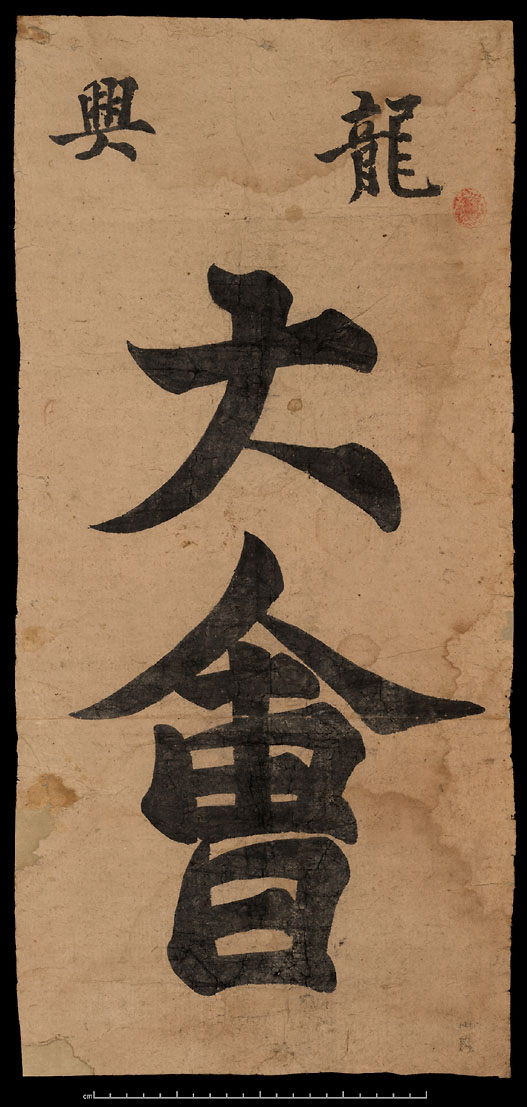 龍興
大
會
cm